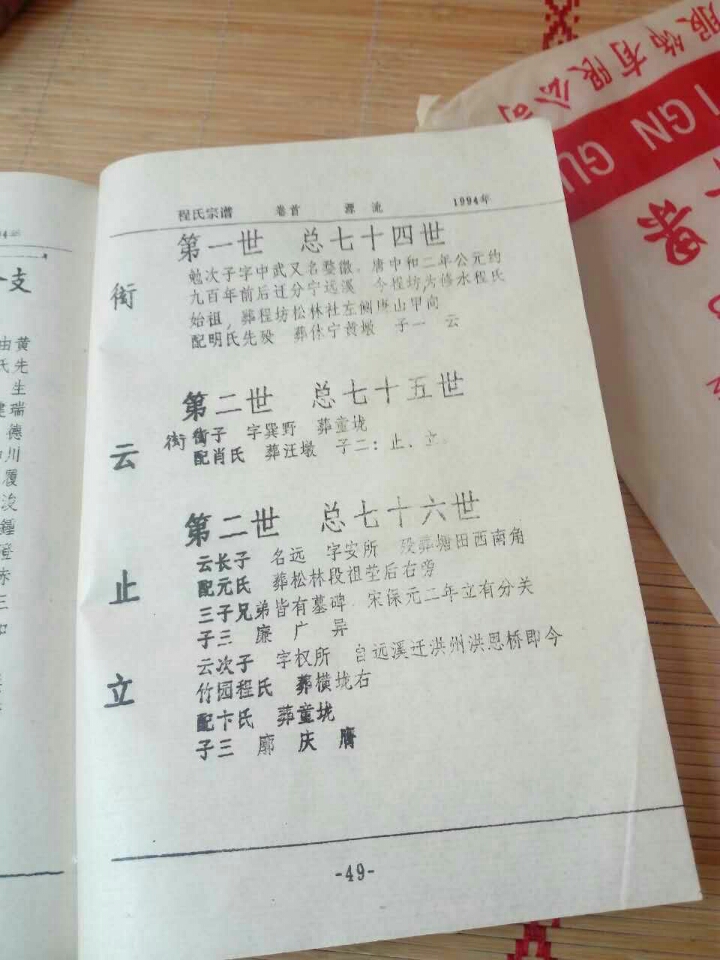 程氏宗谱 卷首 源流 1994年
第一世 总七十四世
衒
勉次子字中武又名婺徽。唐中和二年公元约
九百年前后迁分宁远溪 今程坊为修水程氏
始祖，葬程坊松林社左侧唐山甲向
配明氏先殁 葬休宁黄墩 子一 云
第二世 总七十五世
云
衒 衒子 字巽野 葬童垅
配肖氏 葬汪墩 子二：止、立
第二世 总七十六世
止
云长子 名远 字安所 殁葬塘田西南角
配元氏 葬松林段祖茔后右旁
三子兄弟皆有墓碑 宋保元二年立有分关
子三 廉 广 异
立
云次子 字权所 自远溪迁洪州洪恩桥即今
竹园程氏 葬横垅右
配卞氏 葬童垅
子三 廓 庆 膺
-49-
支
由黄
氏先
生
瑞
德
川
履
三
服饰有限公司
IGN GU